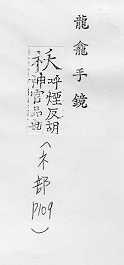 龍龕手鏡
祆呼煙反胡
神官品
(ネ部 P109)